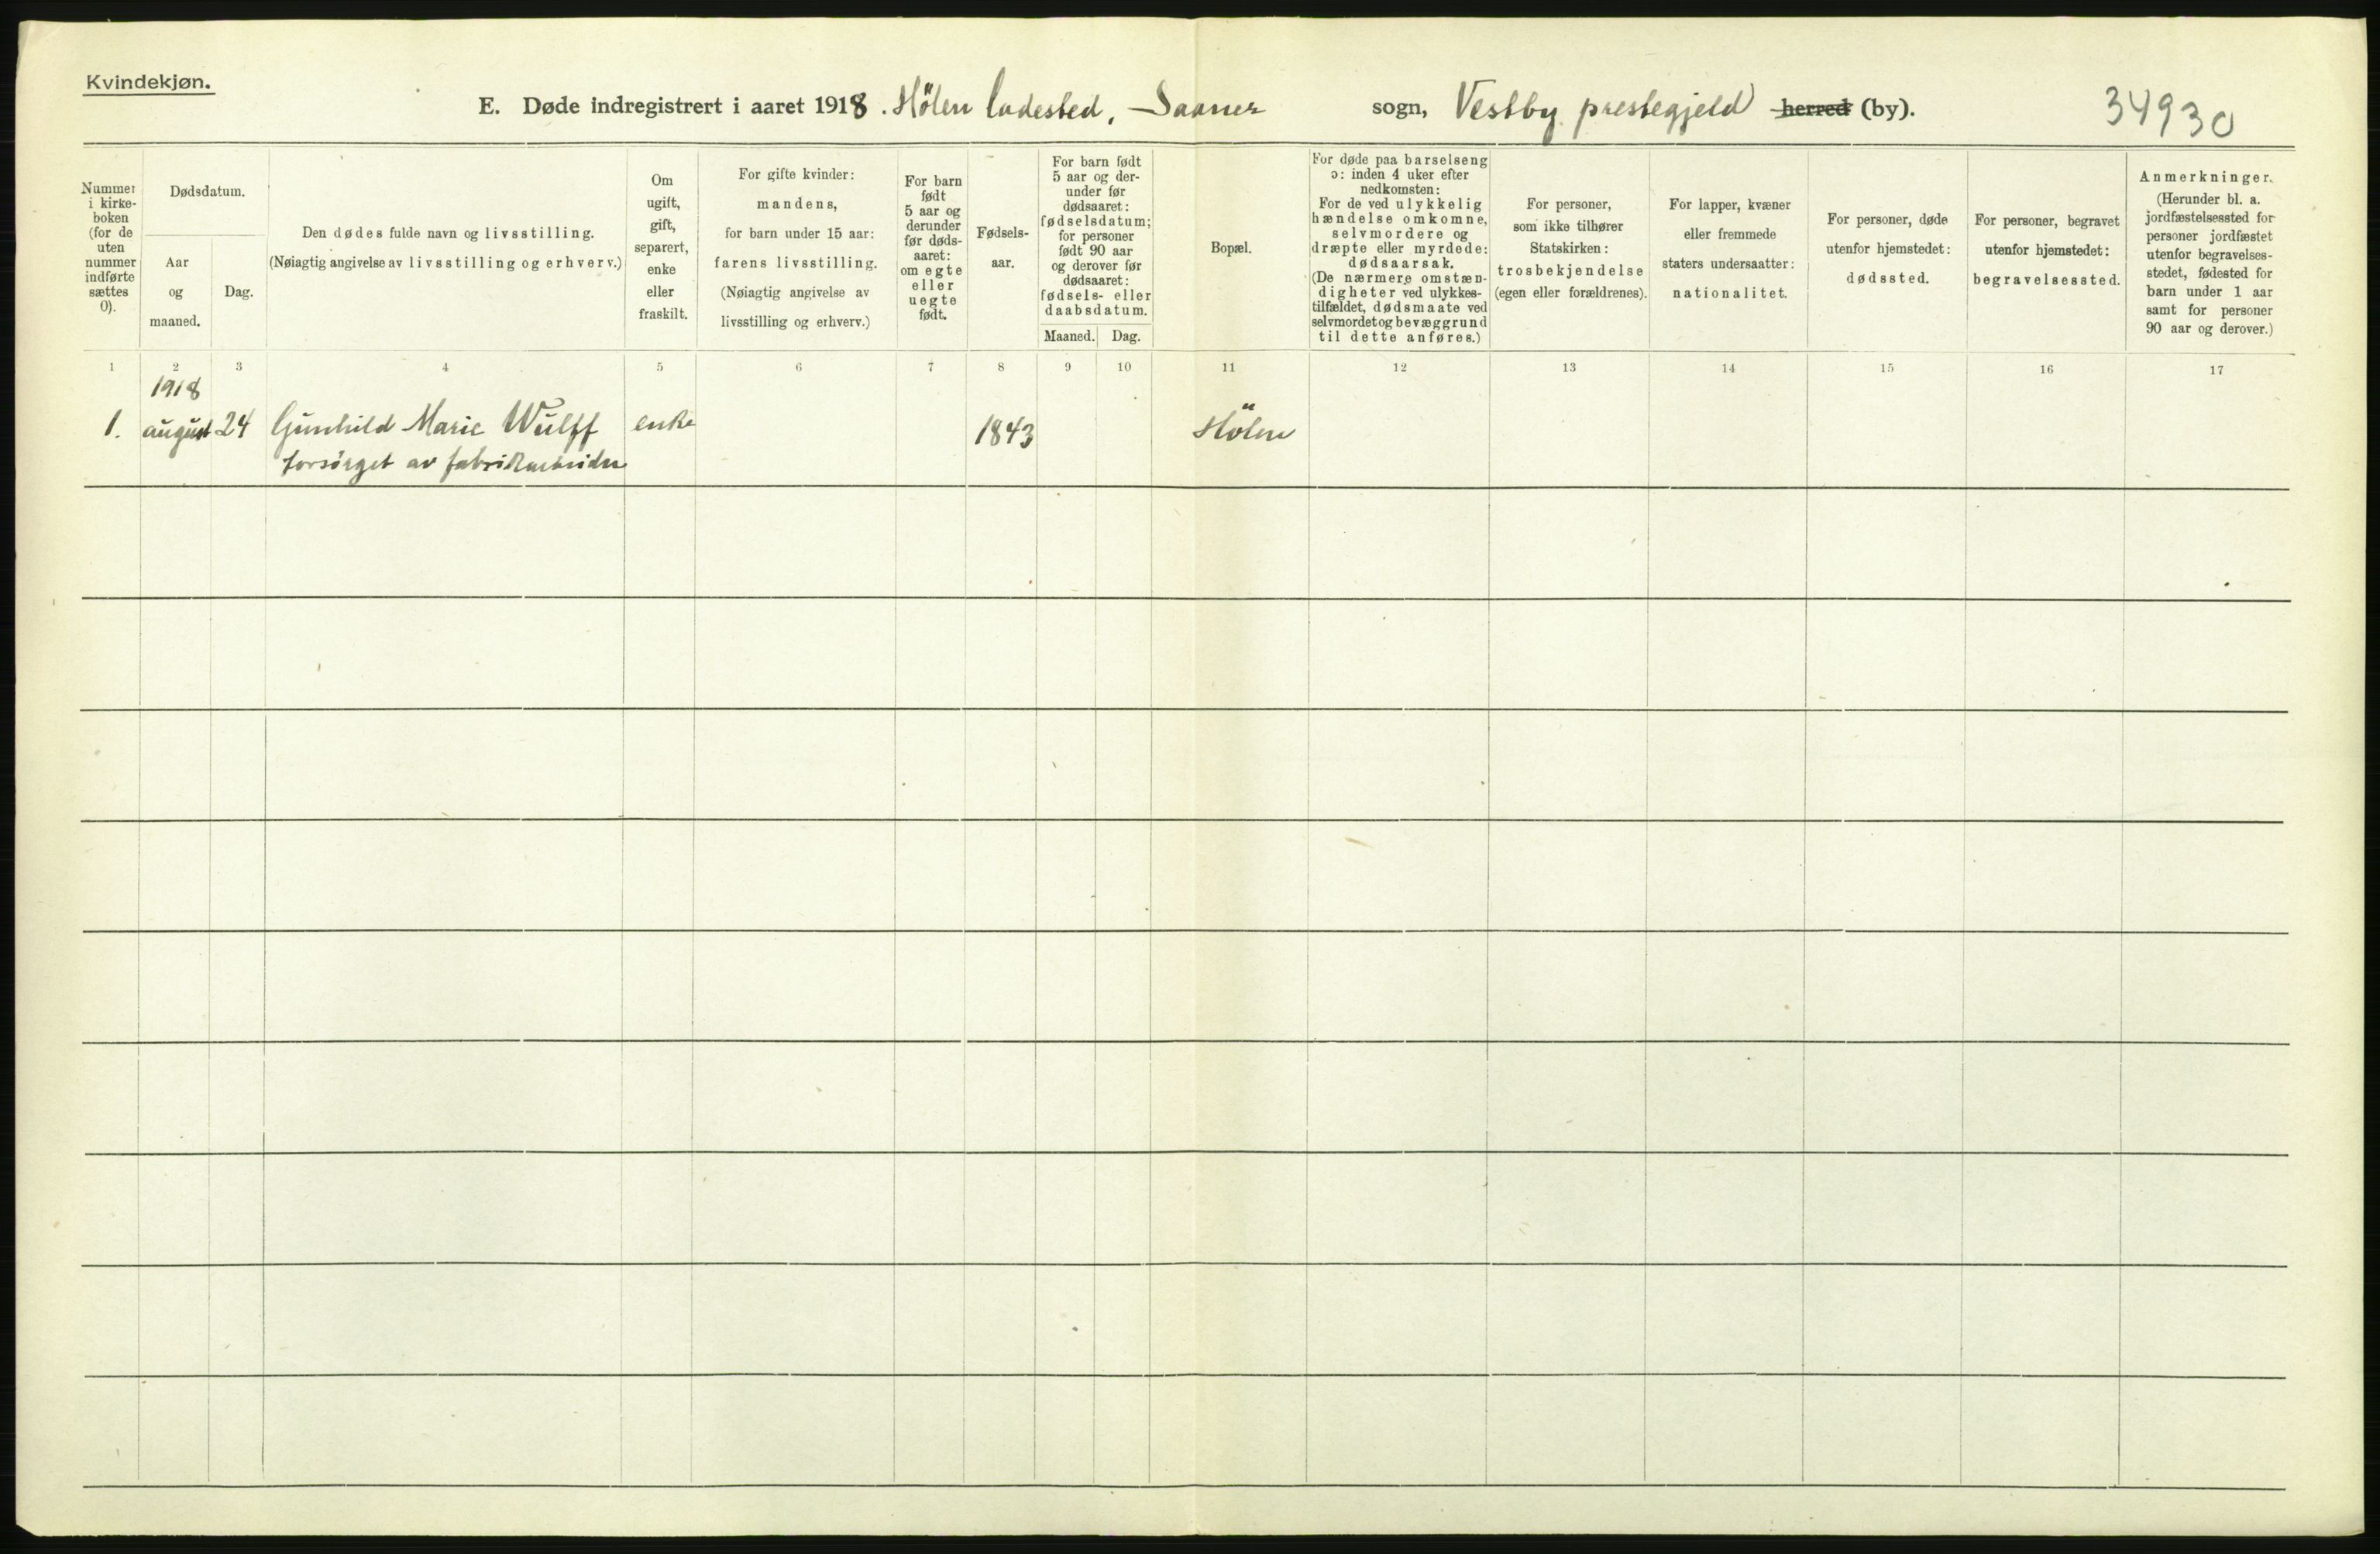 Kvindekjøn.
E. Døde indregistrert i aaret 1918. Hölen ladested, Saaner sogn, Vestby prestegjeld herred (by).
34930
Nummer i kirkeboken (for de uten nummer indførte sættes 0).
Dødsdatum.
Aar og maaned.
Dag.
Den dødes fulde navn og livsstilling.
(Nøiagtig angivelse av livsstilling og erhverv.)
Om ugift, gift, separert, enke eller fraskilt.
For gifte kvinder:
mandens,
for barn under 15 aar:
farens livsstilling.
(Nøiagtig angivelse av
livsstilling og erhverv.)
For barn født 5 aar og derunder før dødsaaret: om egte eller uegte født.
Fødselsaar.
For barn født
5 aar og der-
under før
dødsaaret:
fødselsdatum;
for personer
født 90 aar
og derover før
dødsaaret:
fødsels- eller
daabsdatum.
Maaned.
Dag.
Bopæl.
For døde paa barselseng
ɔ: inden 4 uker efter
nedkomsten:
For de ved ulykkelig
hændelse omkomne,
selvmordere og
dræpte eller myrdede:
dødsaarsak.
(De nærmere omstæn-
digheter ved ulykkes-
tilfældet, dødsmaate ved
selvmordet og bevæggrund
til dette anføres.)
For personer,
som ikke tilhører
Statskirken:
trosbekjendelse
(egen eller forældrenes).
For lapper, kvæner
eller fremmede
staters undersaatter:
nationalitet.
For personer, døde
utenfor hjemstedet:
dødssted.
For personer, begravet
utenfor hjemstedet:
begravelsessted.
Anmerkninger.
(Herunder bl. a.
jordfæstelsessted for
personer jordfæstet
utenfor begravelses-
stedet, fødested for
barn under 1 aar
samt for personer
90 aar og derover.)
1 2 3 4 5 6 7 8 9 10 11 12 13 14 15 16 17
1918
1. august 24 Gunhild Marie Wulff enke 1843 Hölen
forsörget av fabrikarbeider